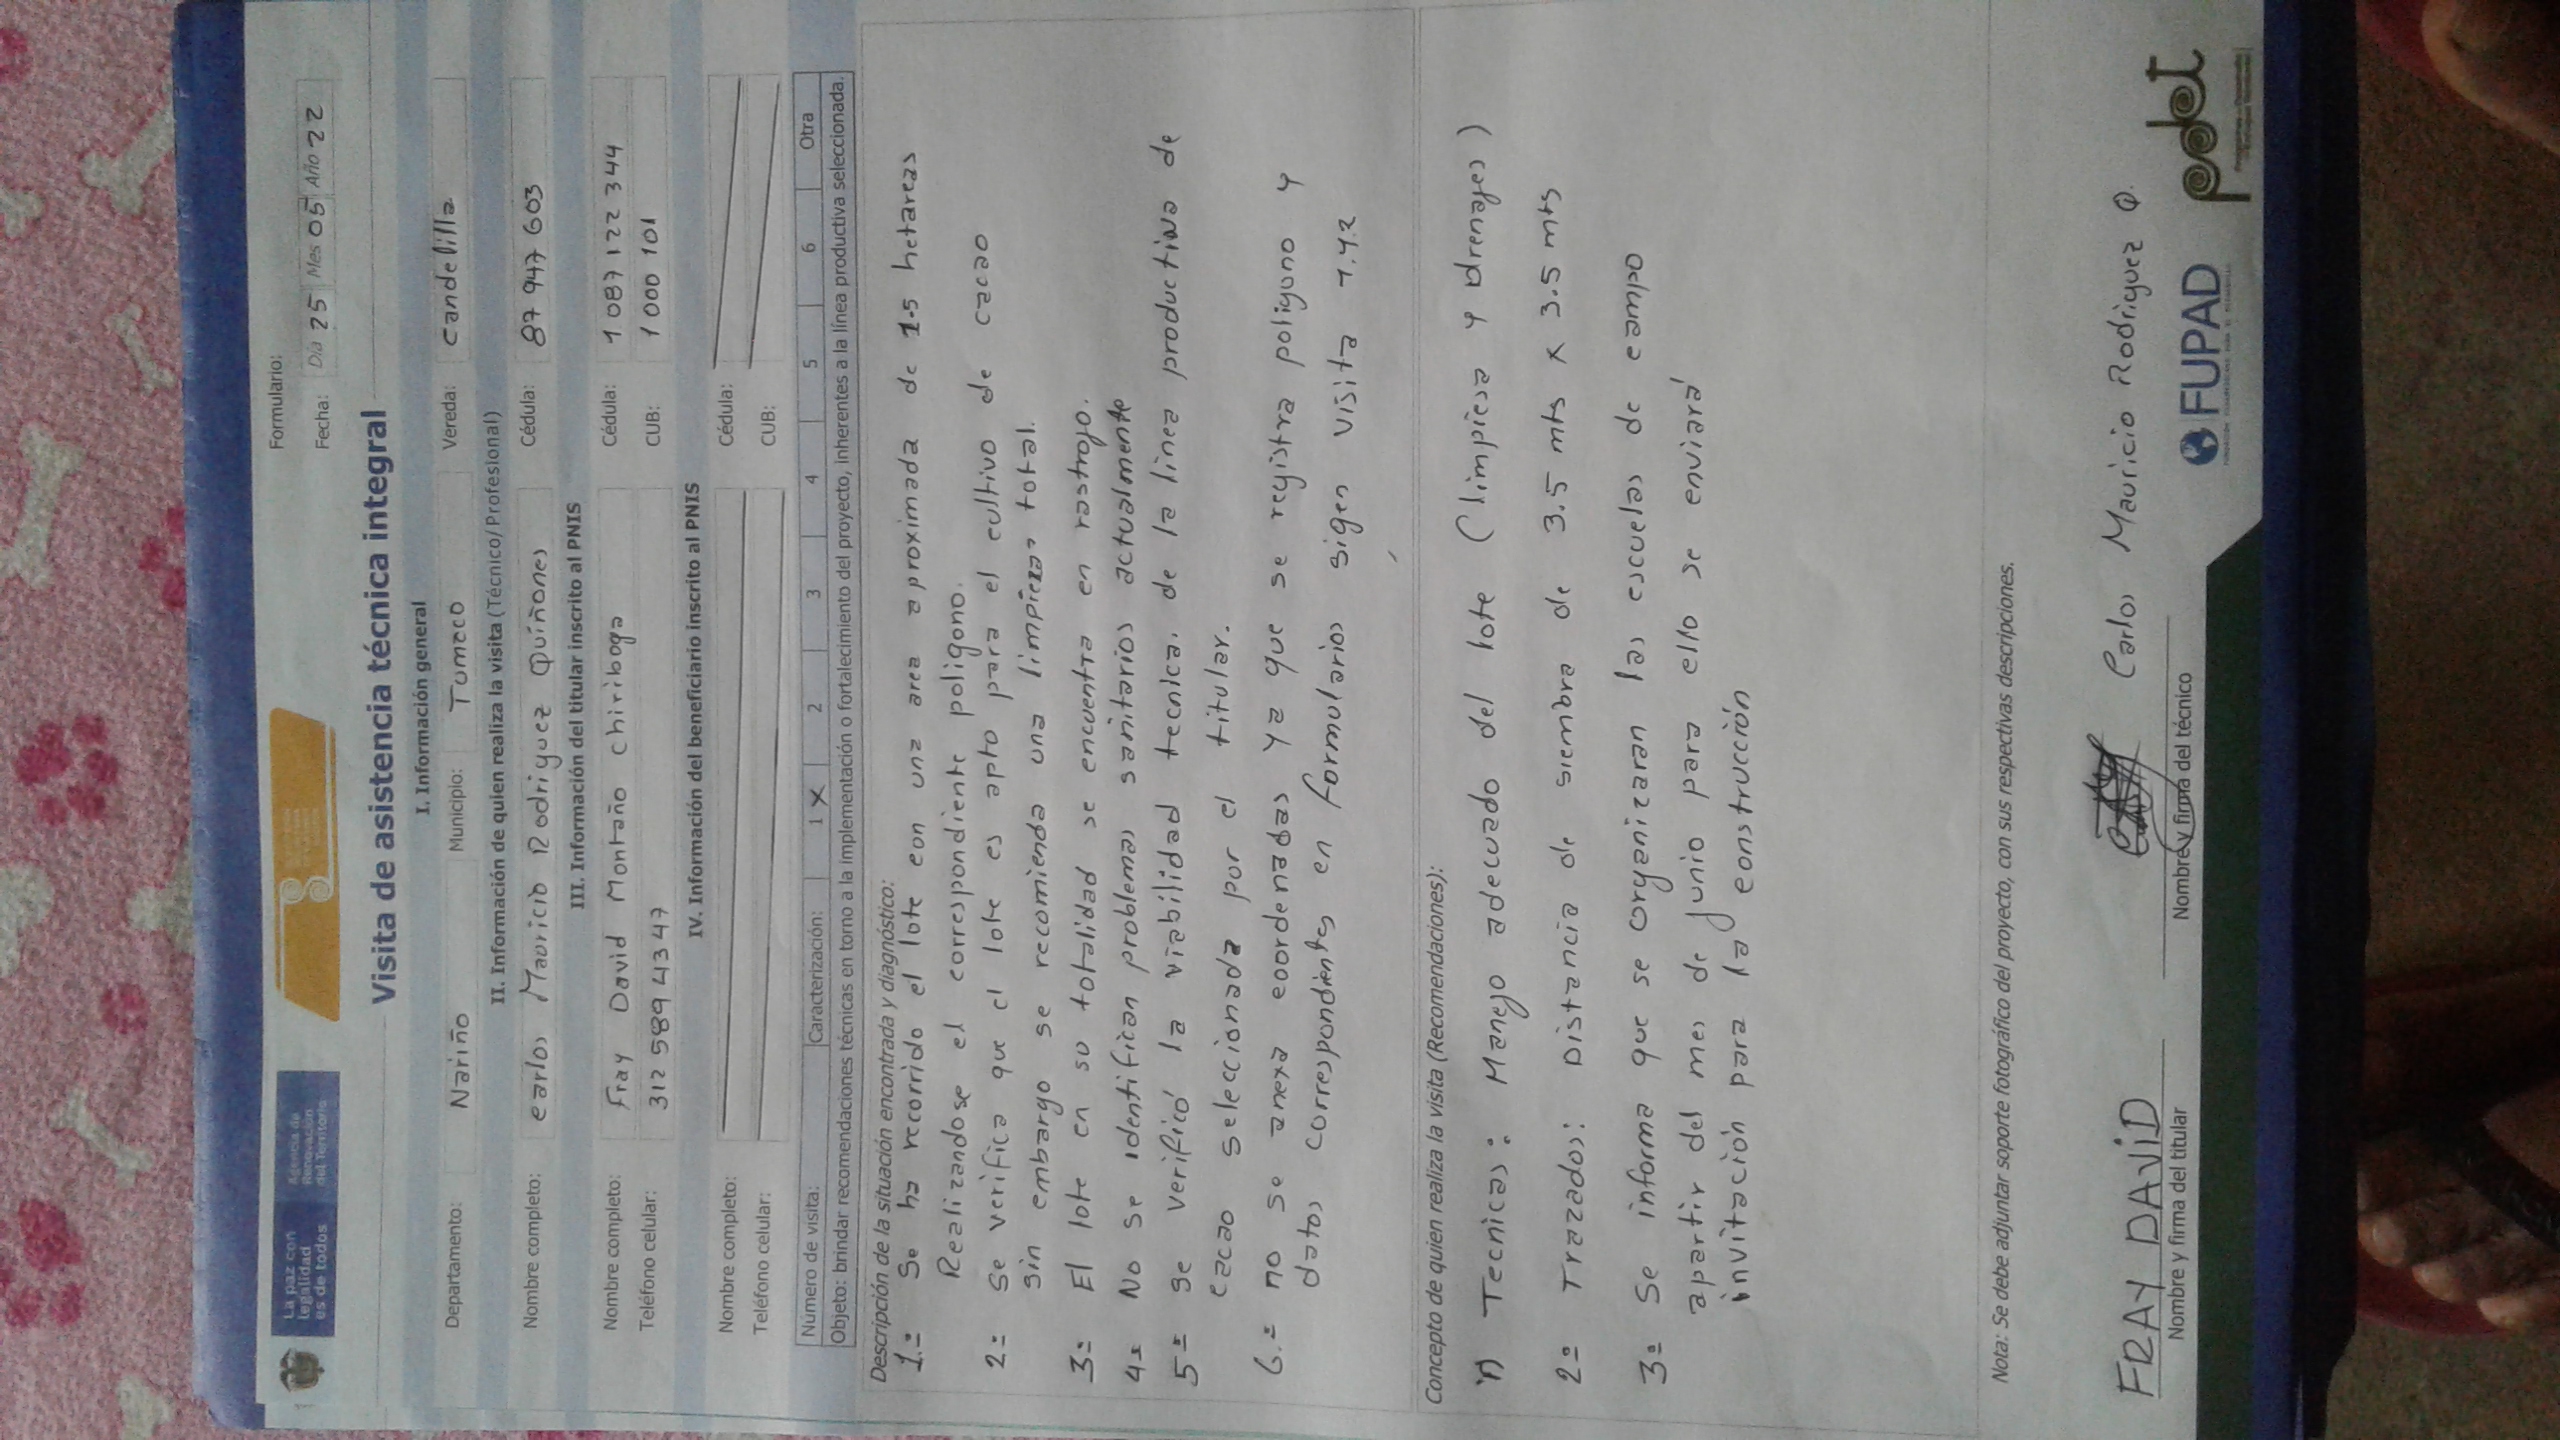 La paz con
legalidad
es de todos
Agencia de
Renovación
del Territorio
Formulario:
Fecha: Día 25 Mes 05 Año 22
Visita de asistencia técnica integral
I. Información general
Departamento: Nariño Municipio: Tumaco Vereda: candelilla
II. Información de quien realiza la visita (Técnico/Profesional)
Nombre completo: carlos Mauricio Rodriguez Quiñones Cédula: 87 947 603
III. Información del titular inscrito al PNIS
Nombre completo: Fray David Montaño chiriboga Cédula: 1 087 122 344
Teléfono celular: 312 589 4347 CUB: 1 000 101
IV. Información del beneficiario inscrito al PNIS
Nombre completo: Cédula:
Teléfono celular: CUB:
Número de visita: Caracterización: 1 X 2 3 4 5 6 Otra
Objeto: brindar recomendaciones técnicas en torno a la implementación o fortalecimiento del proyecto, inherentes a la línea productiva seleccionada.
Descripción de la situación encontrada y diagnóstico:
1.= Se ha recorrido el lote con una area aproximada de 1.5 hetareas
Realizandose el correspondiente poligono.
2= se verifica que el lote es apto para el cultivo de cacao
sin embargo se recomienda una limpieza total.
3= El lote en su totalidad se encuentra en rastrojo.
4= No se identifican problemas sanitarios actualmente
5= se verificó la viabilidad tecnica, de la linea productiva de
cacao seleccionada por el titular.
6.= no se anexa coordenadas ya que se registra poligono y
datos correspondientes en formularios sigen visita 1.4.2
Concepto de quien realiza la visita (Recomendaciones):
1) Tecnicas: Manejo adecuado del lote (limpiesa y drenages)
2= Trazados: Distancia de siembra de 3.5 mts x 3.5 mts
3= Se informa que se organizaran las escuelas de campo
apartir del mes de junio para ello se enviará
invitación para la construcción
Nota: Se debe adjuntar soporte fotográfico del proyecto, con sus respectivas descripciones.
FRAY DAViD
Nombre y firma del titular
Carlos Mauricio Rodriguez Q.
Nombre y firma del técnico
FUPAD
pdet